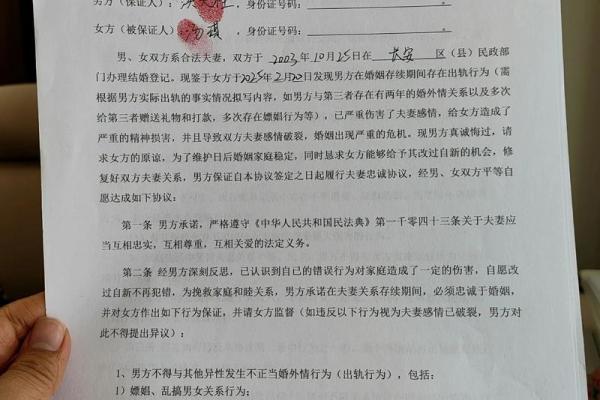 男方（保证人）：，身份证号码：
女方（被保证人）：，身份证号码：
男、女双方系合法夫妻，双方于 2003 年 10 月 25 日在 长安 区（县）民政部
门办理结婚登记。现鉴于女方于2025年2月20日发现男方在婚姻存续期间存在出轨行为（需
根据男方实际出轨的事实情况拟写内容，如男方与第三者存在有两年的婚外情关系以及多次
给第三者赠送礼物和打款，多次存在嫖娼行为等），已严重伤害了夫妻感情，给女方造成了
严重的精神损害，并且导致双方夫妻感情破裂，婚姻出现严重的危机。现男方真诚悔过，请
求女方的原谅，为了维护日后婚姻家庭稳定，同时恳求女方能够给予其改过自新的机会，修
复好双方夫妻关系，男方保证自本协议签定之日起履行夫妻忠诚协议，经男、女双方平等自
愿达成如下协议：
第一条 男方承诺，严格遵守《中华人民共和国民法典》第一千零四十三条关于夫妻应
当互相忠实，互相尊重，互相关爱的法定义务。
第二条 经男方深刻反思，已认识到自己的错误行为对家庭造成了一定的伤害，自愿改
过自新不再犯错，为挽救家庭和睦关系，男方承诺在夫妻关系存续期间，必须忠诚于婚姻，
并对女方作出如下行为保证，并请女方监督（如违反以下行为视为夫妻感情已破裂，男方对
此不得提出异议）：
1、男方不得与其他异性发生不正当婚外情行为（出轨行为），包括：
1）嫖娼、乱搞男女关系行为；